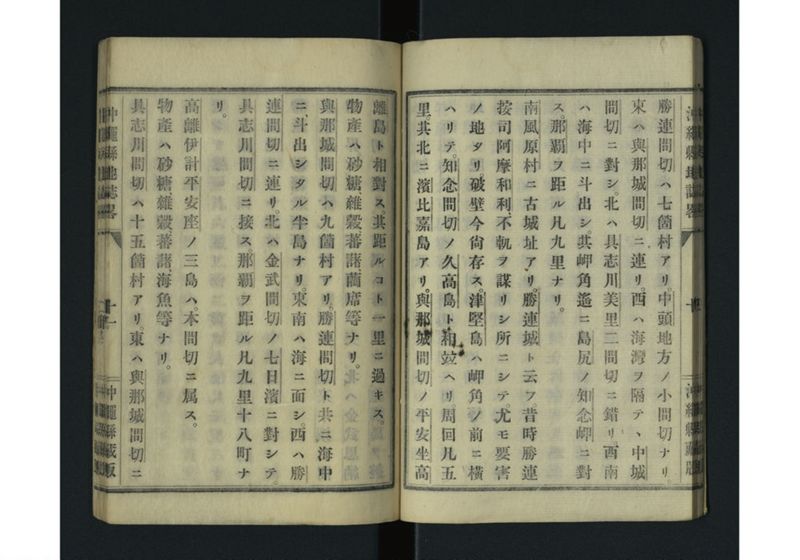 勝連間切ハ七箇村アリ。中頭地方ノ小間切ナリ。
東ハ與那城間切ニ連リ。西ハ海灣ヲ隔テ、中城
間切ニ對シ。北ハ具志川美里二間切ニ錯リ。西南
ハ海中ニ斗出シ。其岬角遙ニ島尻ノ知念岬ニ對
ス。那覇ヲ距ル凡九里ナリ。
南風原村ニ古城址アリ。勝連城ト云フ昔時勝連
按司阿摩和利、不軌ヲ謀リシ所ニシテ尤モ要害
ノ地タリ破壁今尙存ス。津堅島ハ岬角ノ前ニ橫
ハリテ。知念間切ノ久高島ト相竝ヘリ周回凡五
里。其北ニ濱比嘉島アリ。與那城間切ノ平安坐高
離島ト相對ス其距ルコト一里ニ過キス。
物產ハ砂糖、雜穀蕃藷、藺席等ナリ。
與那城間切ハ九箇村アリ。勝連間切ト共ニ海中
ニ斗出シタル半島ナリ。東南ハ海ニ面シ。西ハ勝
連間切ニ連リ。北ハ金武間切ノ七日濱ニ對シテ
具志川間切ニ接ス那覇ヲ距ル凡九里十八町ナ
リ。
高離伊計平安座ノ三島ハ本間切ニ屬ス。
物產ハ砂糖、雜穀蕃藷、海魚等ナリ。
具志川間切ハ十五箇村アリ。東ハ與那城間切ニ
沖繩縣地誌略
十一
沖繩縣藏版